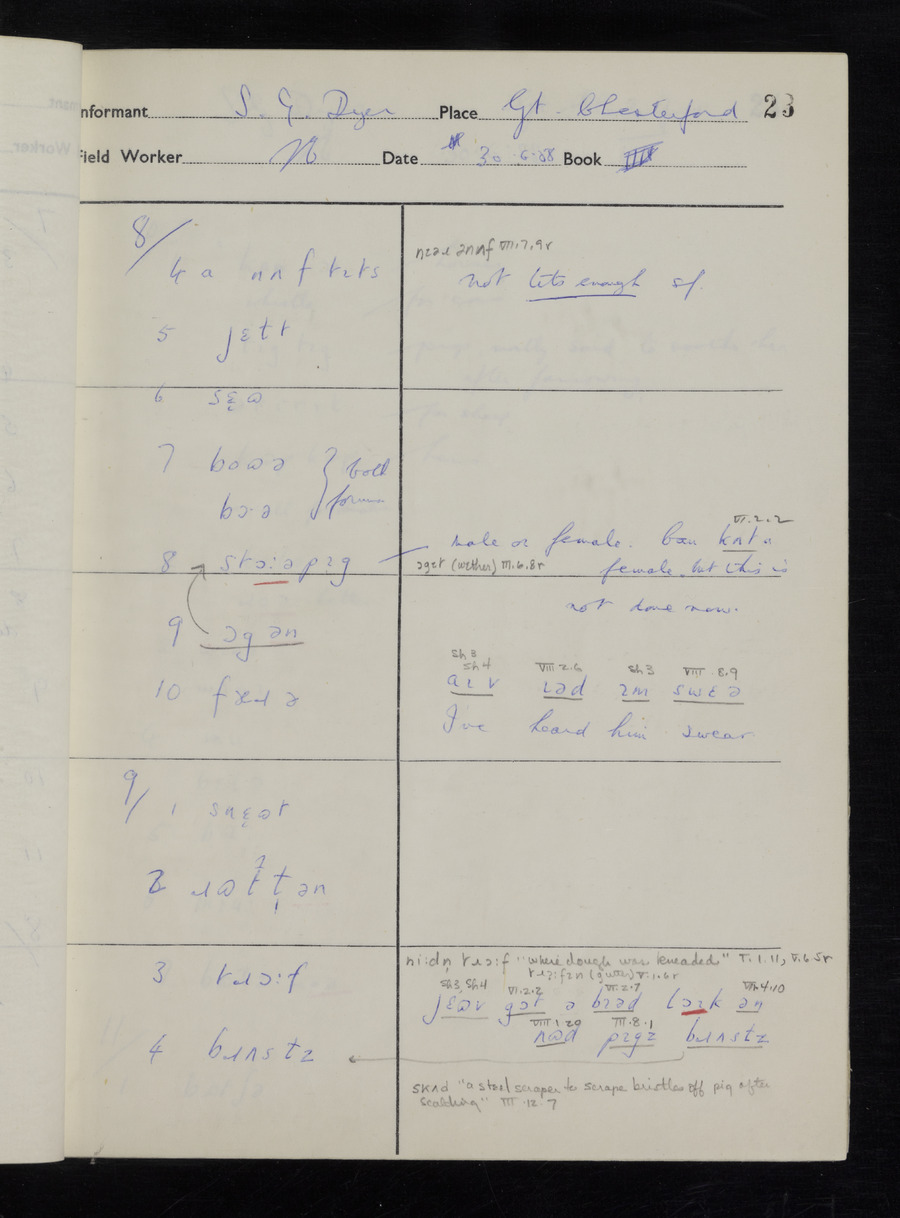 Informant S. G. Dyer Place Gt. Chesterford 23
Field Worker N Date 30.6.58 Book
8/
4 a nʌf tɪts
nɪəɹ ənʌf VII.7,9r
not tits enough sf.
5 jɛtt
6 sɛ̣ɷ
7 boɷə } both
bɔ·ə forms
8 stɔ:ə pɪg
male or female. Can kʌt a VI.2.2
ɔgɪt (wether) III.6.8r
female but this is
not done now.
9 ɔgən
10 fæɹə
Sh 3 Sh 4 VIII.2.6 Sh 3 VIII 8.9
aɪv ɪəd ɪm swɛə
I've heard him swear
9/
1 snɛ̣ɷt
2 ɹɷtṭən
3 tɹɔ:f
ni:dn̩ tɹɔ:f "where dough was kneaded" V.1.11, V.6.5r
tɹɔ:fɪn (gutter) V.1.6r
Sh3, Sh4 VI.2.2 VI.2.7 VII.4.10
jɛɷv gɔt ə bɪəd lɔɪk ən
VIII 1.20 III.8.1
nɷd pɪgz bɹʌstz
4 bɹʌstz
skʌd "a steel scraper to scrape bristles off pig after
scalding" III.12.7